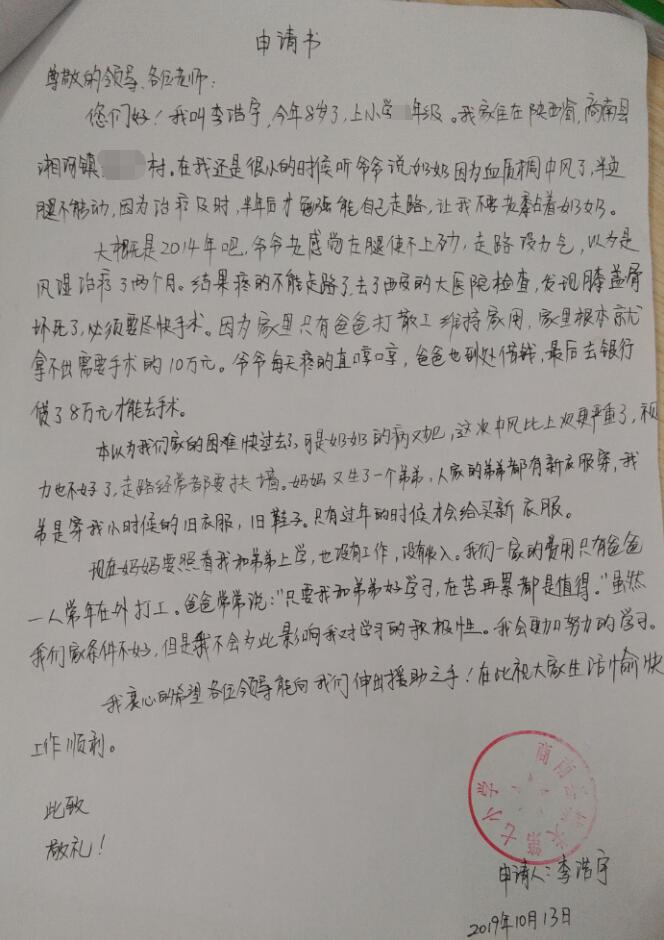 申请书
尊敬的领导、各位老师：
您们好！我叫李浩宇，今年8岁了，上小学年级。我家住在陕西省，商南县
湘河镇村。在我还是很小的时候听爷爷说奶奶因为血质稠中风了，半边
腿不能动，因为治疗及时，半年后才勉强能自己走路，让我不要老黏着奶奶。
大概是2014年吧，爷爷老感觉左腿使不上劲，走路没力气，以为是
风湿治疗了两个月。结果疼的不能走路了，去了西安的大医院检查，发现膝盖骨
坏死了，必须要尽快手术。因为家里只有爸爸打散工维持家用，家里根本就
拿不出需要手术的10万元。爷爷每天疼的直哼哼，爸爸也到处借钱，最后去银行
贷了8万元才能去手术。
本以为我们家的困难快过去了，可是奶奶的病又犯，这次中风比上次更严重了，视
力也不好了，走路经常都要扶墙。妈妈又生了一个弟弟，人家的弟弟都有新衣服穿，我
弟是穿我小时候的旧衣服，旧鞋子。只有过年的时候才会给买新衣服。
现在妈妈要照看我和弟弟上学，也没有工作，没有收入。我们一家的费用只有爸爸
一人常年在外打工。爸爸常常说："只要我和弟弟好学习，在苦再累都是值得。"虽然
我们家条件不好，但是我不会为此影响我对学习的积极性。我会更加努力的学习。
我衷心的希望各位领导能向我们伸出援助之手！在此祝大家生活愉快
工作顺利。
此致
敬礼！
商南县
第七小学
申请人：李浩宇
2019年10月13日